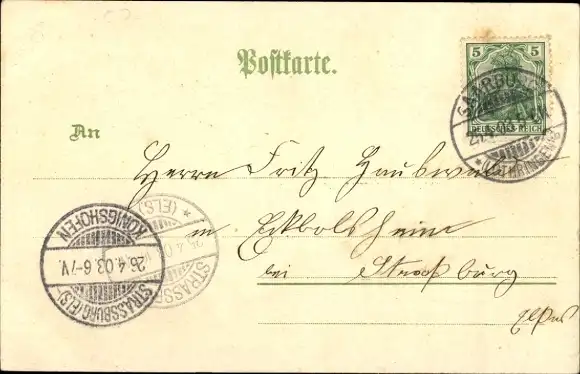 Postkarte.
5 5
DEUTSCHES REICH
SAARBURG
(LOTHRINGEN)
An
Herrn Fritz
in Eckbolsheim
bei Straßburg
Elsass
KÖNIGSHOFEN
26.4.03.6-7V.
STRASSBURG (ELS)-
* (ELS.)
STRASSB